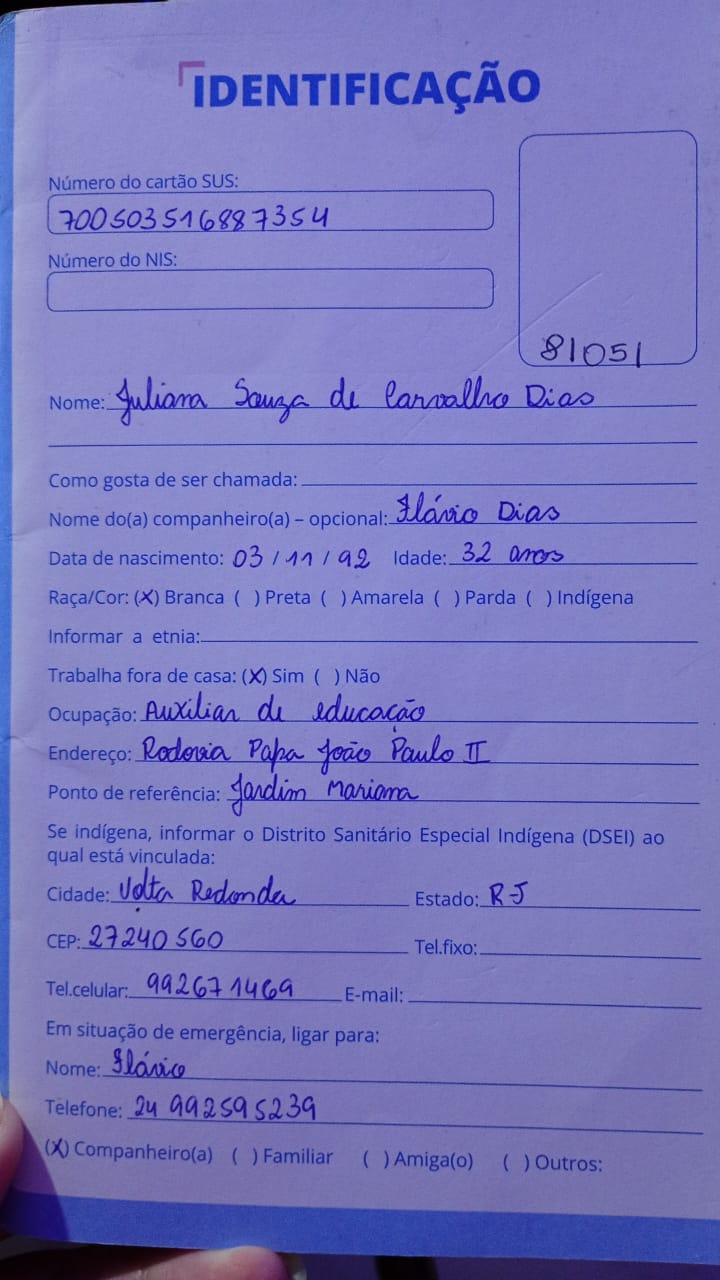 IDENTIFICAÇÃO
Número do cartão SUS:
700503516887354
Número do NIS:
81051
Nome: Juliana Souza de Carvalho Dias
Como gosta de ser chamada:
Nome do(a) companheiro(a) – opcional: Flávio Dias
Data de nascimento: 03 / 11 / 92 Idade: 32 anos
Raça/Cor: (X) Branca ( ) Preta ( ) Amarela ( ) Parda ( ) Indígena
Informar a etnia:
Trabalha fora de casa: (X) Sim ( ) Não
Ocupação: Auxiliar de educação
Endereço: Rodovia Papa João Paulo II
Ponto de referência: Jardim Mariana
Se indígena, informar o Distrito Sanitário Especial Indígena (DSEI) ao
qual está vinculada:
Cidade: Volta Redonda Estado: RJ
CEP: 27240560 Tel.fixo:
Tel.celular: 992671469 E-mail:
Em situação de emergência, ligar para:
Nome: Flávio
Telefone: 24 992595239
(X) Companheiro(a) ( ) Familiar ( ) Amiga(o) ( ) Outros: